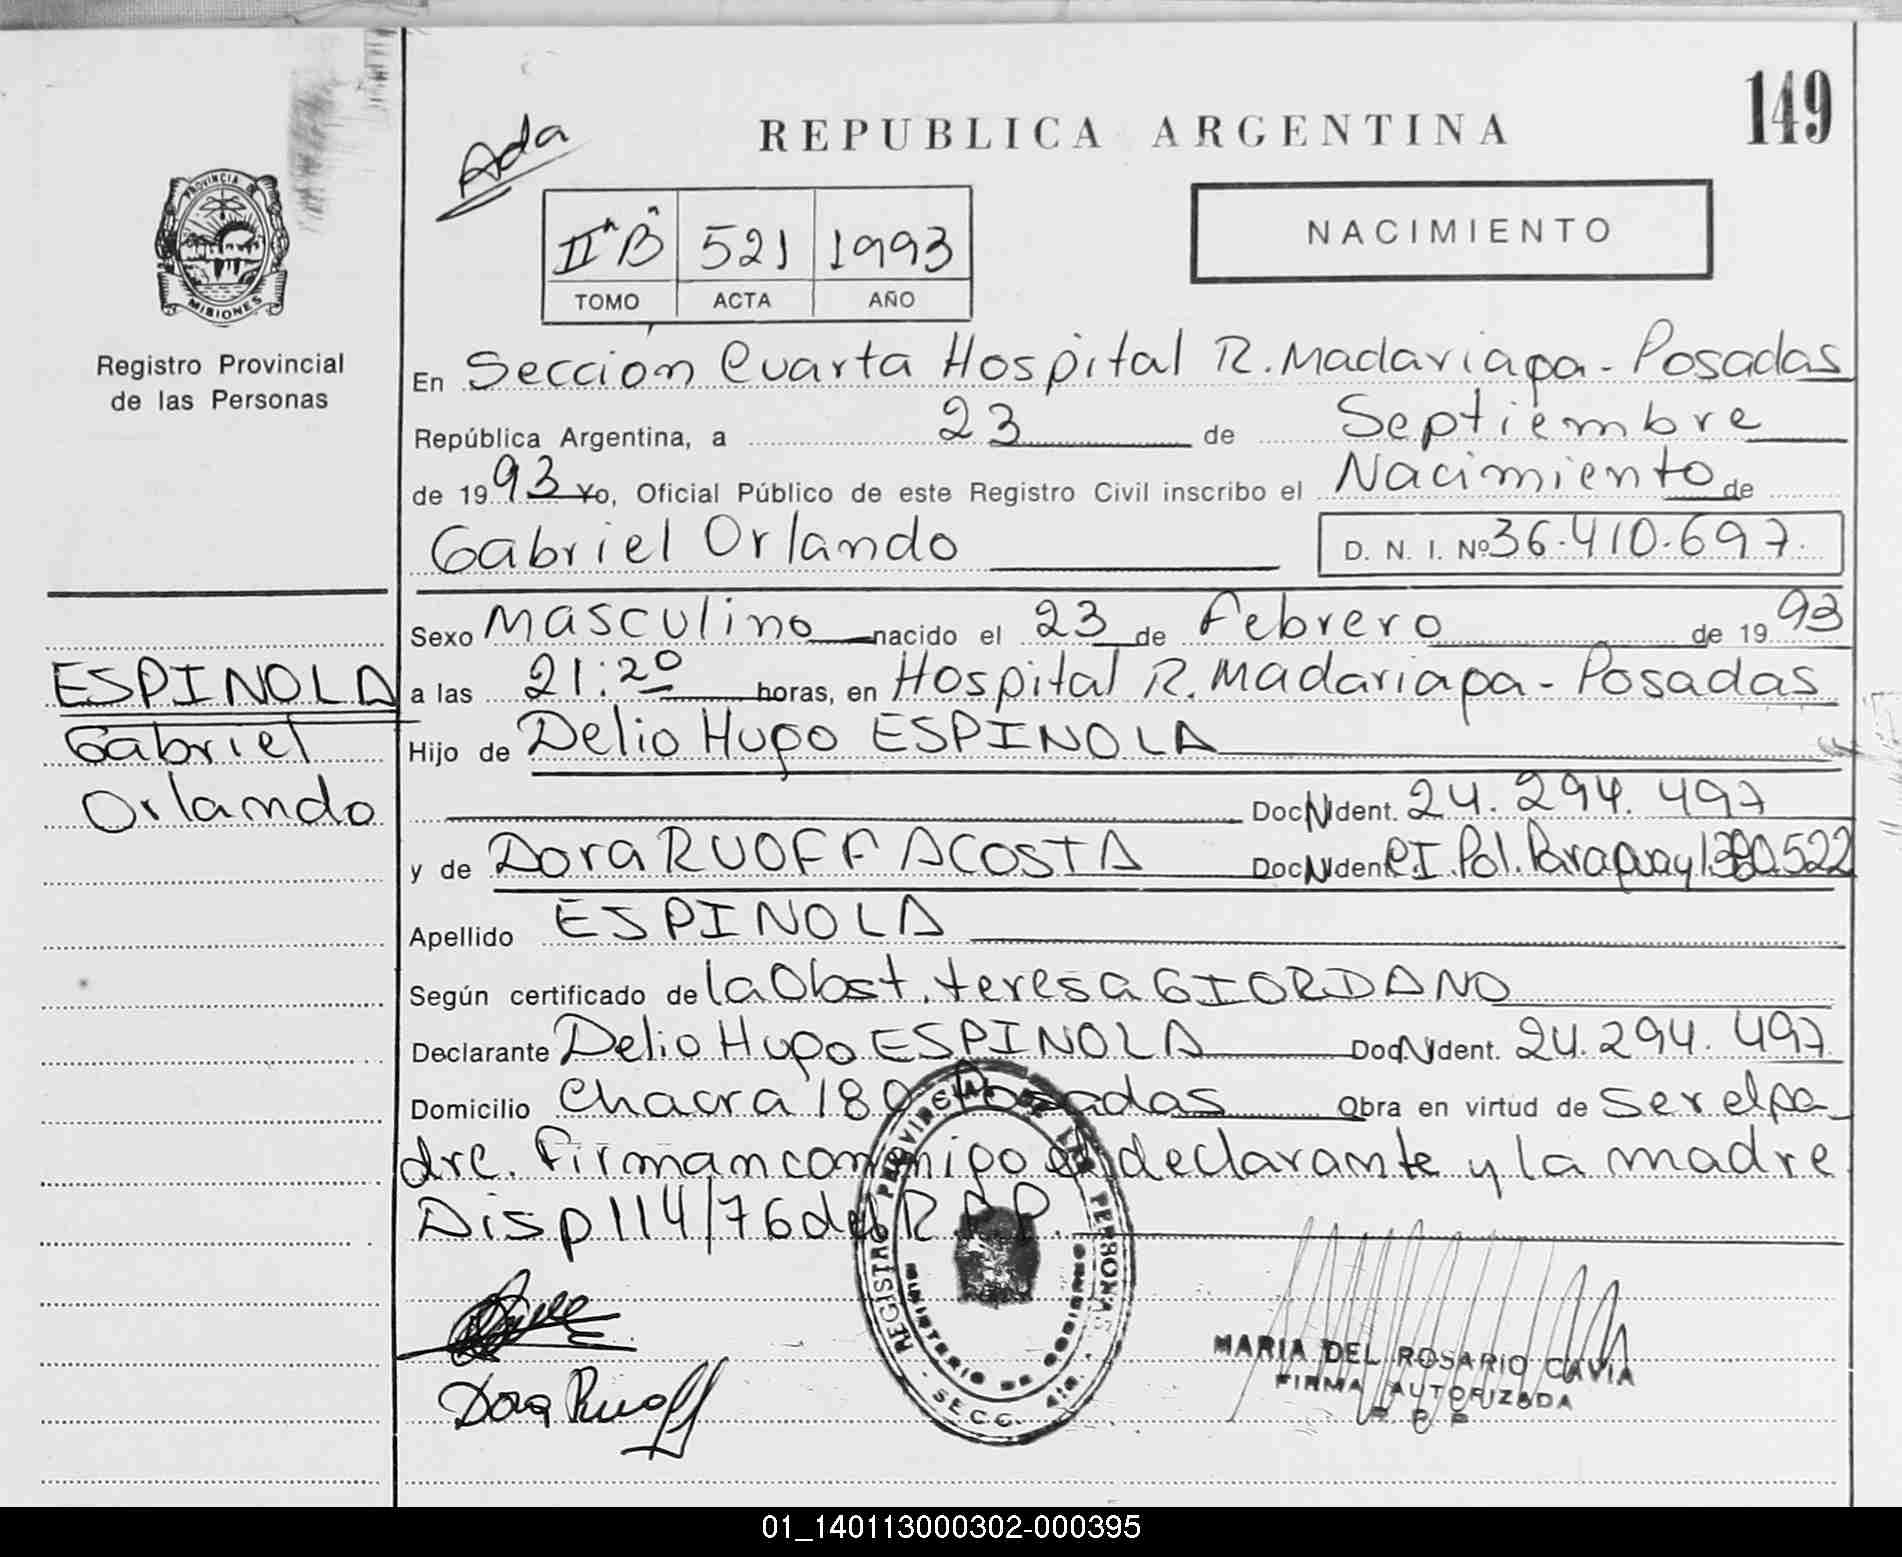 149
Ada
REPUBLICA ARGENTINA
PROVINCIA DE
MISIONES
Registro Provincial
de las Personas
II "B" 521 1993
TOMO ACTA AÑO
NACIMIENTO
En Seccion Cuarta Hospital R. Madariaga - Posadas
República Argentina, a 23 de Septiembre
de 1993 Yo, Oficial Público de este Registro Civil inscribo el Nacimiento de
Gabriel Orlando D. N. I. Nº 36.410.697.
Sexo Masculino nacido el 23 de Febrero de 1993
a las 21:20 horas, en Hospital R. Madariaga - Posadas
Hijo de Delio Hugo ESPINOLA
Doc N Ident. 24.294.497
y de Dora RUOFF ACOSTA Doc N Ident CI. Pol. Paraguay
Apellido ESPINOLA
Según certificado de la Obst. teresa GIORDANO
Declarante Delio Hugo ESPINOLA Doc N Ident. 24.294.497
Domicilio Chacra 180 Posadas Obra en virtud de Ser el pa-
dre. Firman conmigo el declarante y la madre
Disp 114/76 del R.P.P.
ESPINOLA
Gabriel
Orlando
REGISTRO PROVINCIAL DE LAS PERSONAS
MINISTERIO DE GOBIERNO
SECC. 4ta.
Dora Ruoff
MARIA DEL ROSARIO CAVIA
FIRMA AUTORIZADA
R P P
01_140113000302-000395